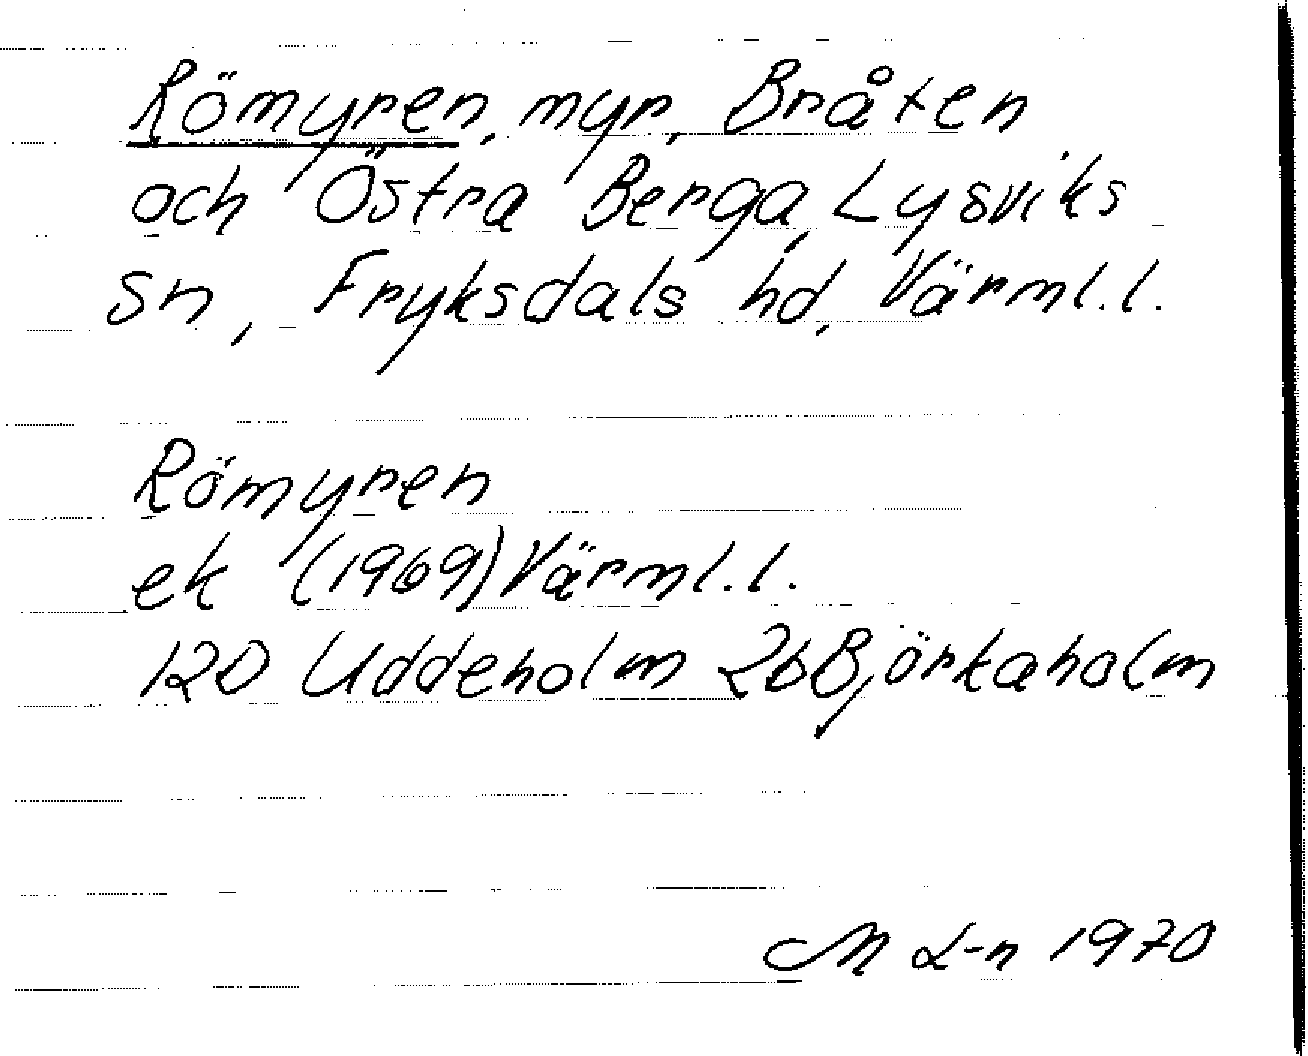 Römyren, myr, Bråten
och Östra Berga, Lysviks
sn, Fryksdals hd, Värml.l.
Römyren
ek (1969) Värml.l.
12D Uddeholm 2b Björkaholm
M L-n 1970